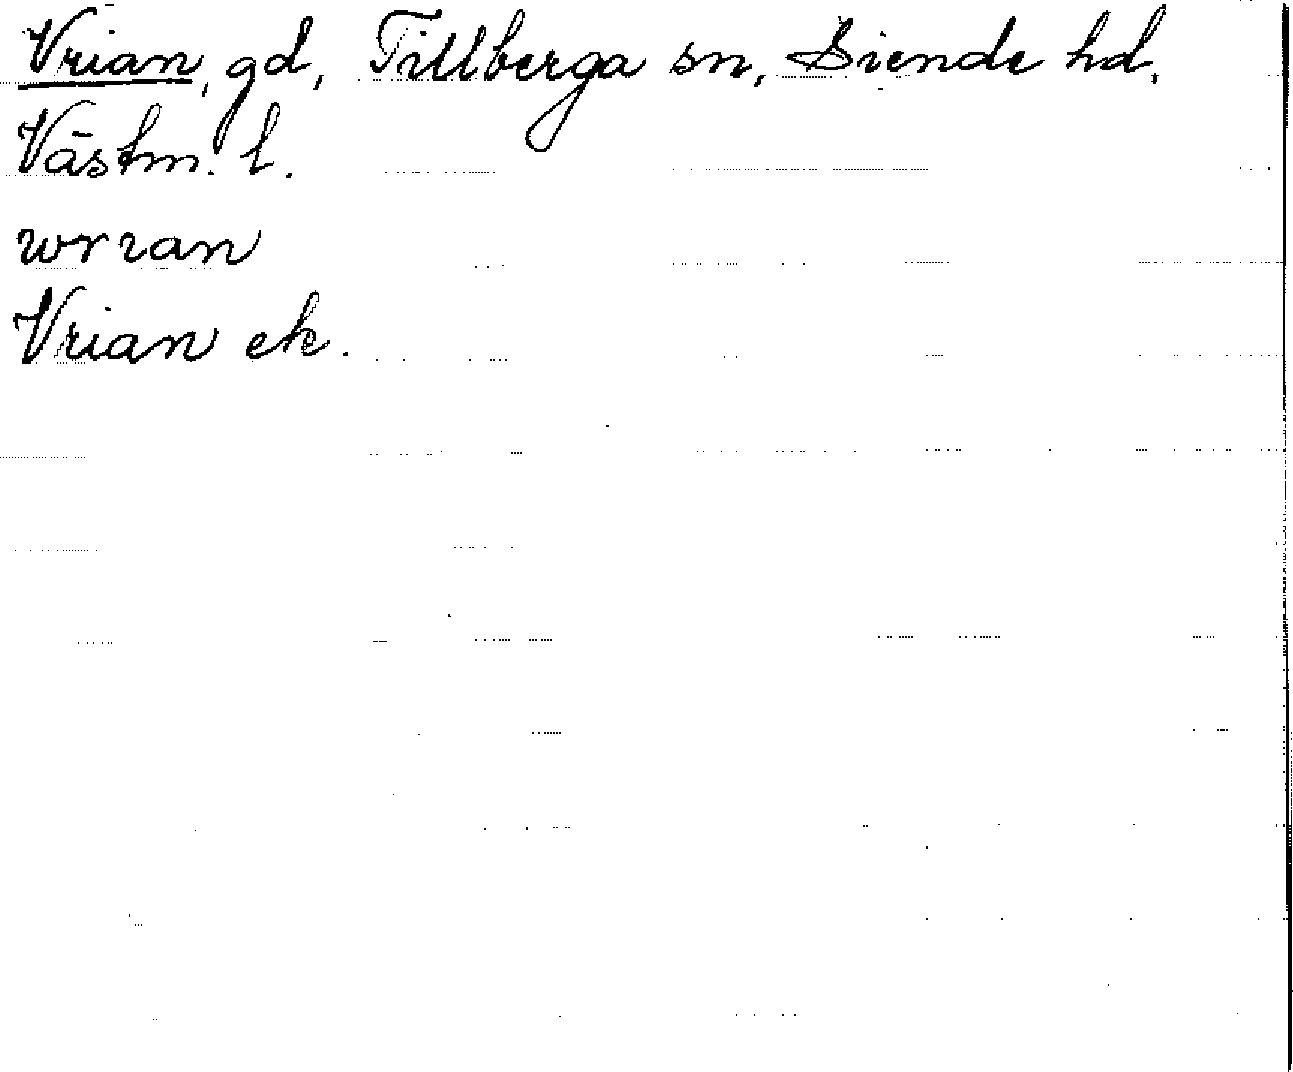 Vrian, gd, Tillberga sn, Siende hd.
Västm. l.
wrıan
Vrian ek.